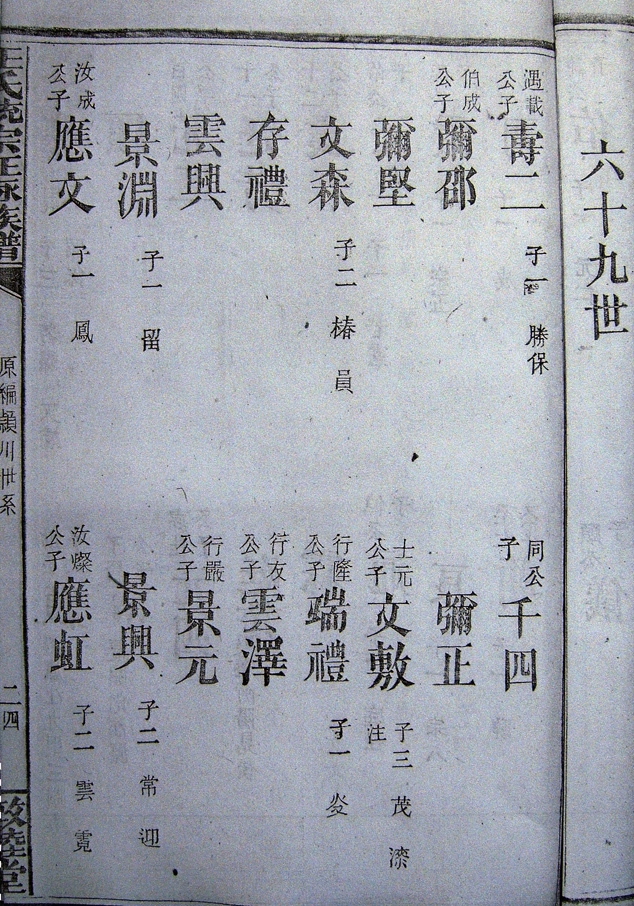 六十九世
遇載公子 壽二 子一 勝保
同公子 千四
伯成公子 彌邵
彌正
彌堅
士元公子 文敷 子三 茂 漆 注
文森 子二 椿 員
行隆公子 端禮 子一 炎
存禮
行友公子 雲澤
雲興
行嚴公子 景元
景淵 子一 留
景興 子二 常 迎
汝成公子 應文 子一 鳳
汝燦公子 應虹 子二 雲 霓
王氏統宗正脉族譜
原編潁川世系
二四
敦睦堂